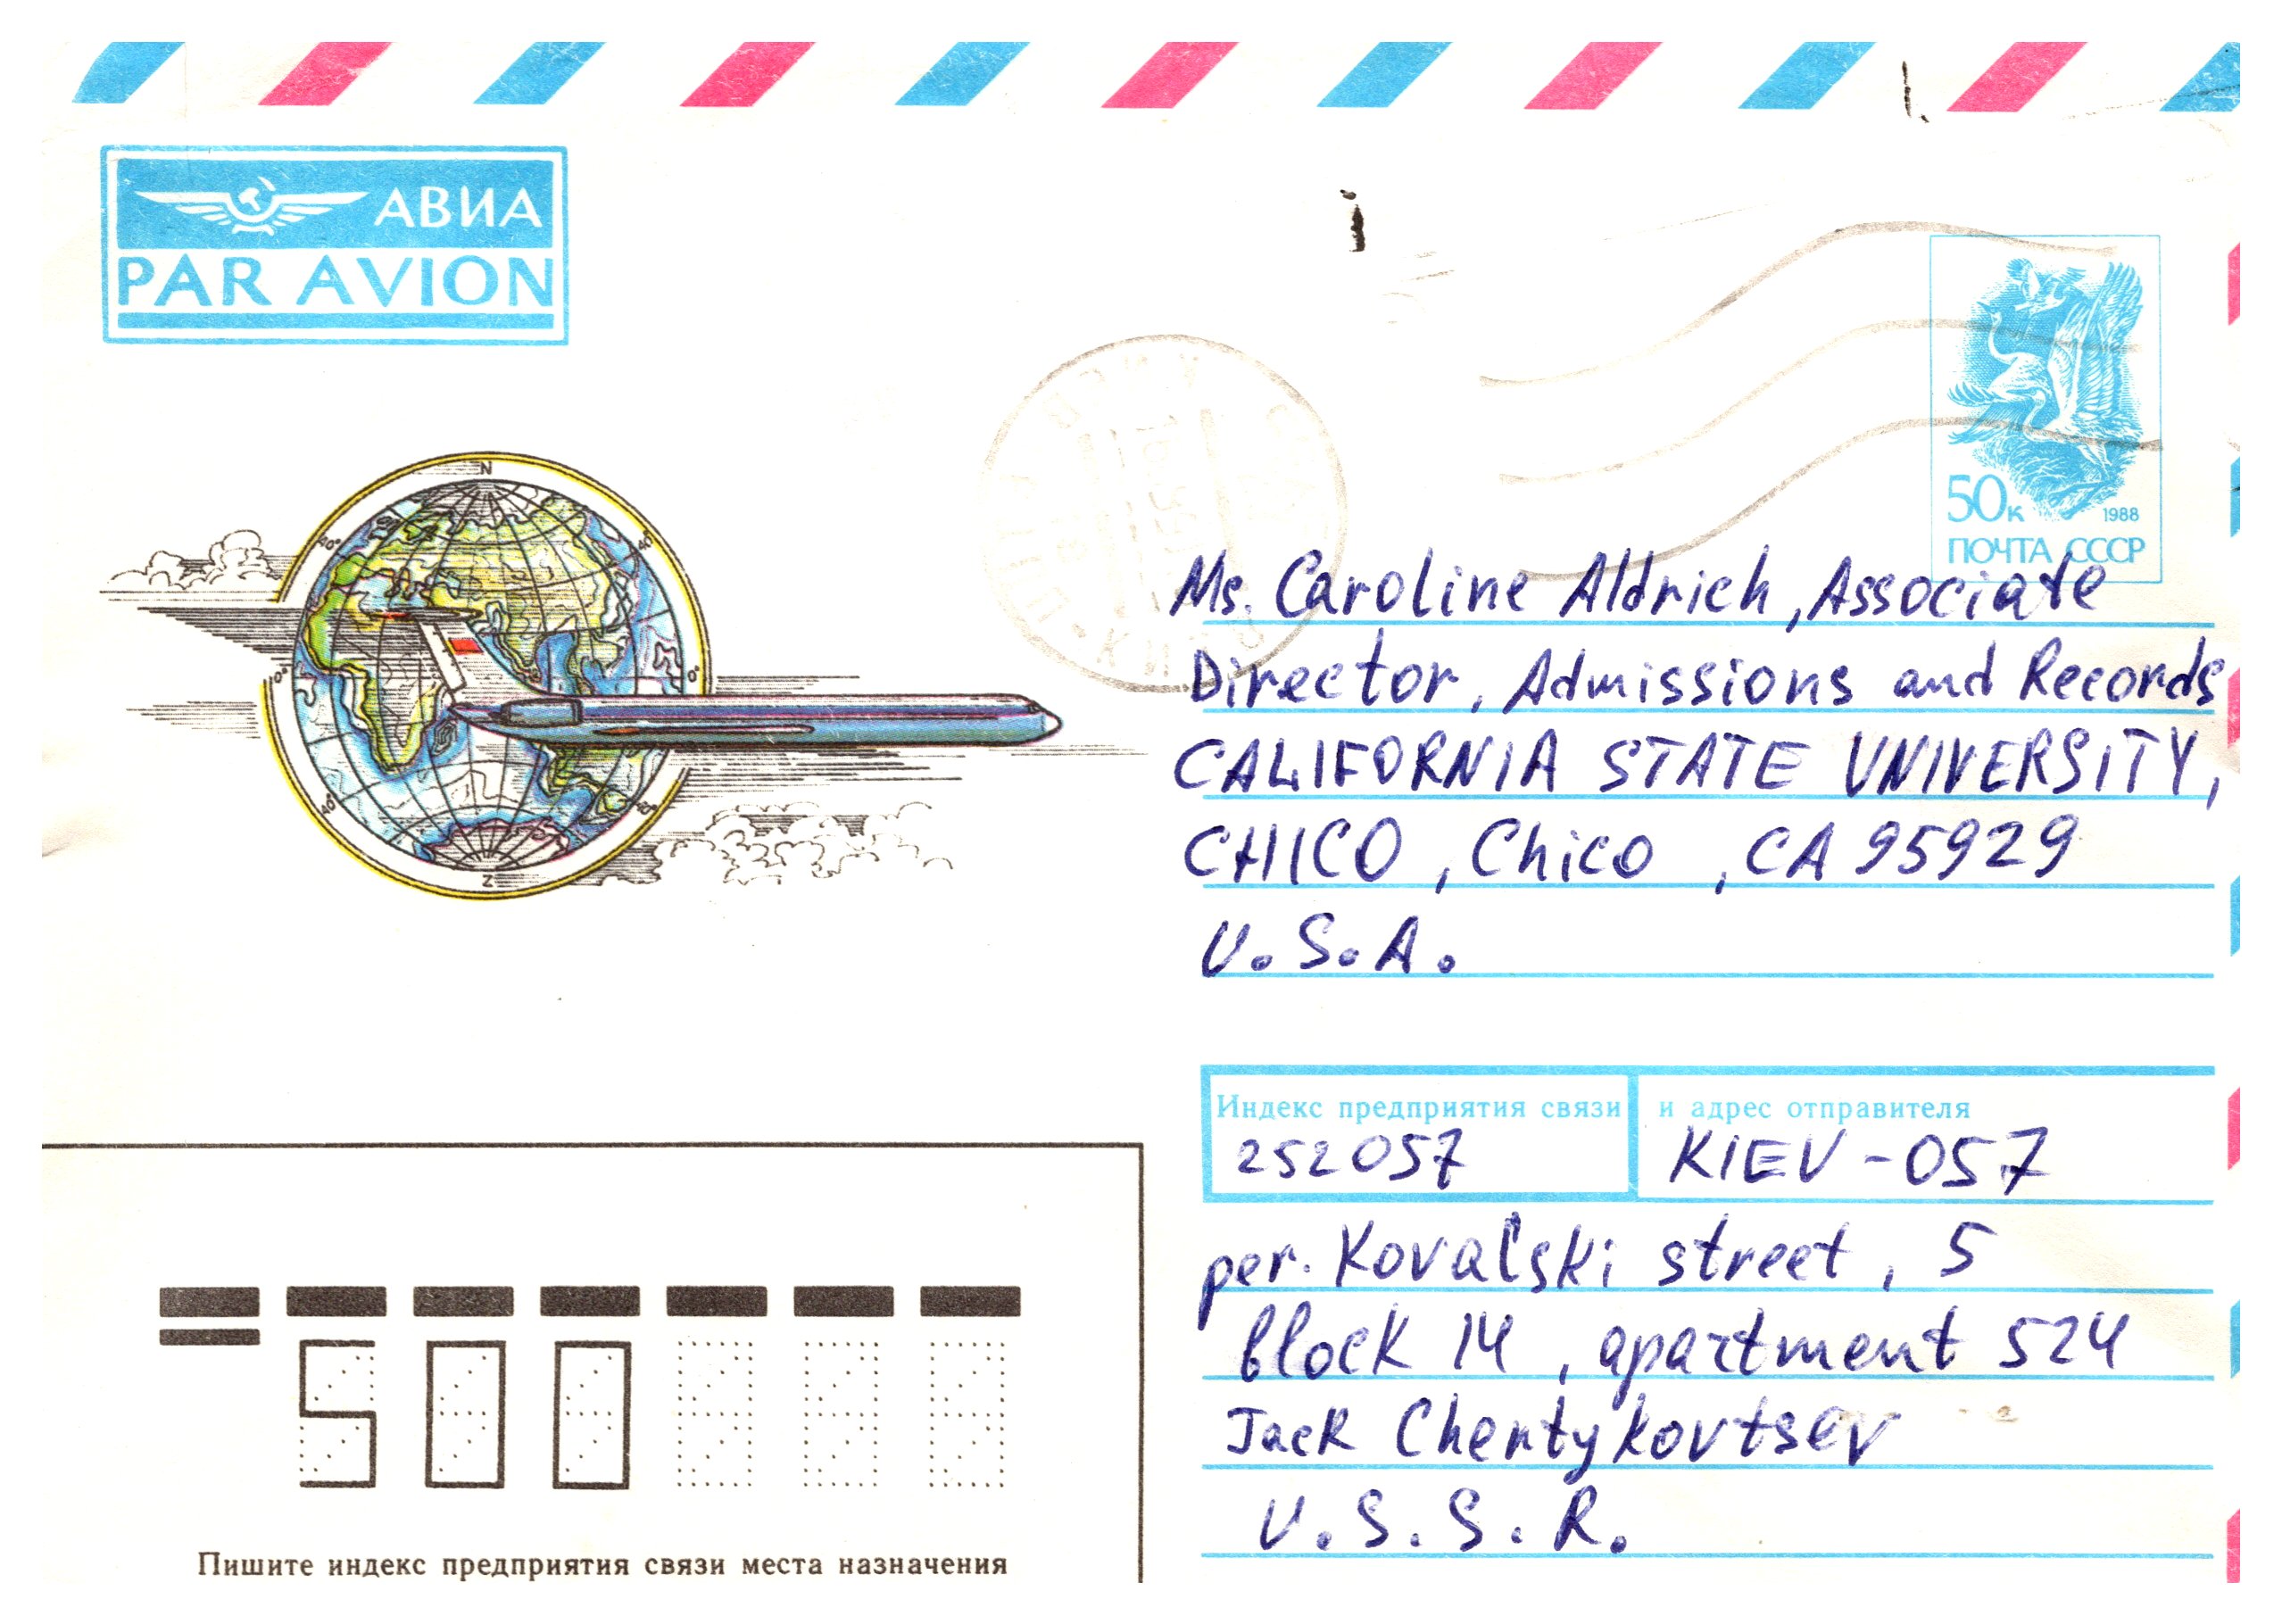 АВИА
PAR AVION
50к
1988
ПОЧТА СССР
N
Z
Ms. Caroline Aldrich, Associate
Director, Admissions and Records
CALIFORNIA STATE UNIVERSITY,
CHICO, Chico, CA 95929
U.S.A.
Индекс предприятия связи и адрес отправителя
252057 KIEV-057
per. Kovalski street, 5
block 14, apartment 524
Jack Chentykovtsev
U.S.S.R.
500
Пишите индекс предприятия связи места назначения